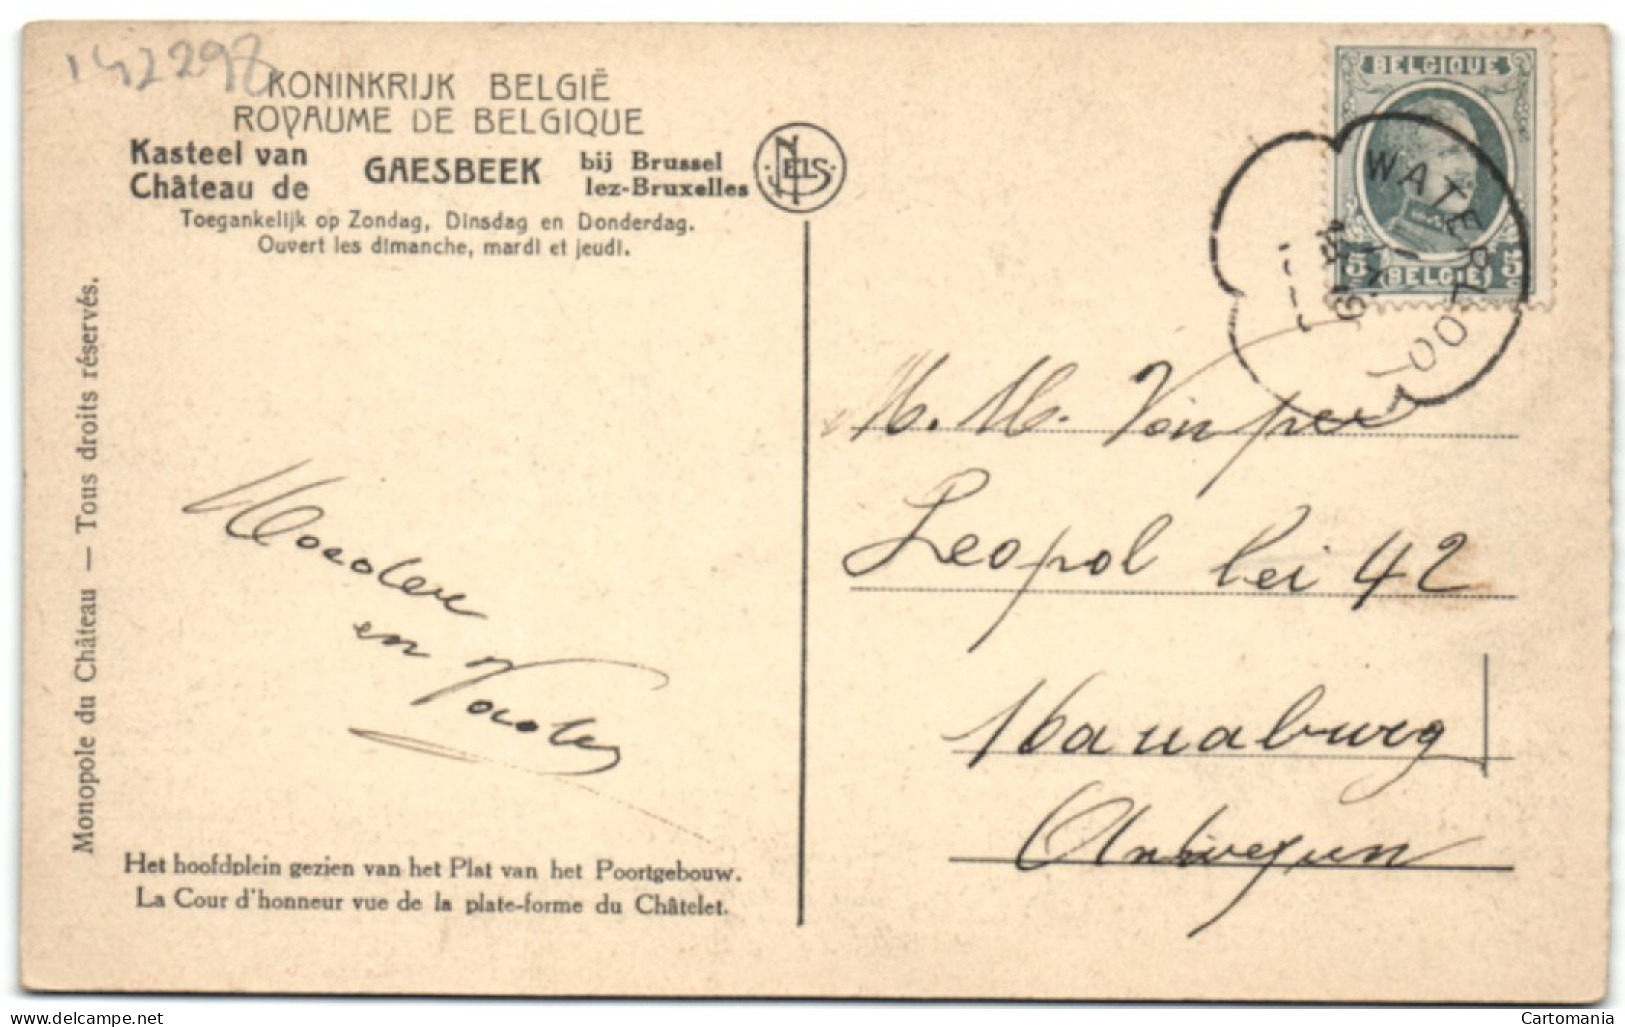 142298
KONINKRIJK BELGIË
ROYAUME DE BELGIQUE
Kasteel van GAESBEEK bij Brussel
Château de lez-Bruxelles
NELS
Toegankelijk op Zondag, Dinsdag en Donderdag.
Ouvert les dimanche, mardi et jeudi.
Monopole du Château — Tous droits réservés.
BELGIQUE
5 BELGIE 5
WATERLOO
M. M.
Leopol lei 42
Antwerpen
Moeder
en Vader
Het hoofdplein gezien van het Plat van het Poortgebouw.
La Cour d'honneur vue de la plate-forme du Châtelet.
Cartomania